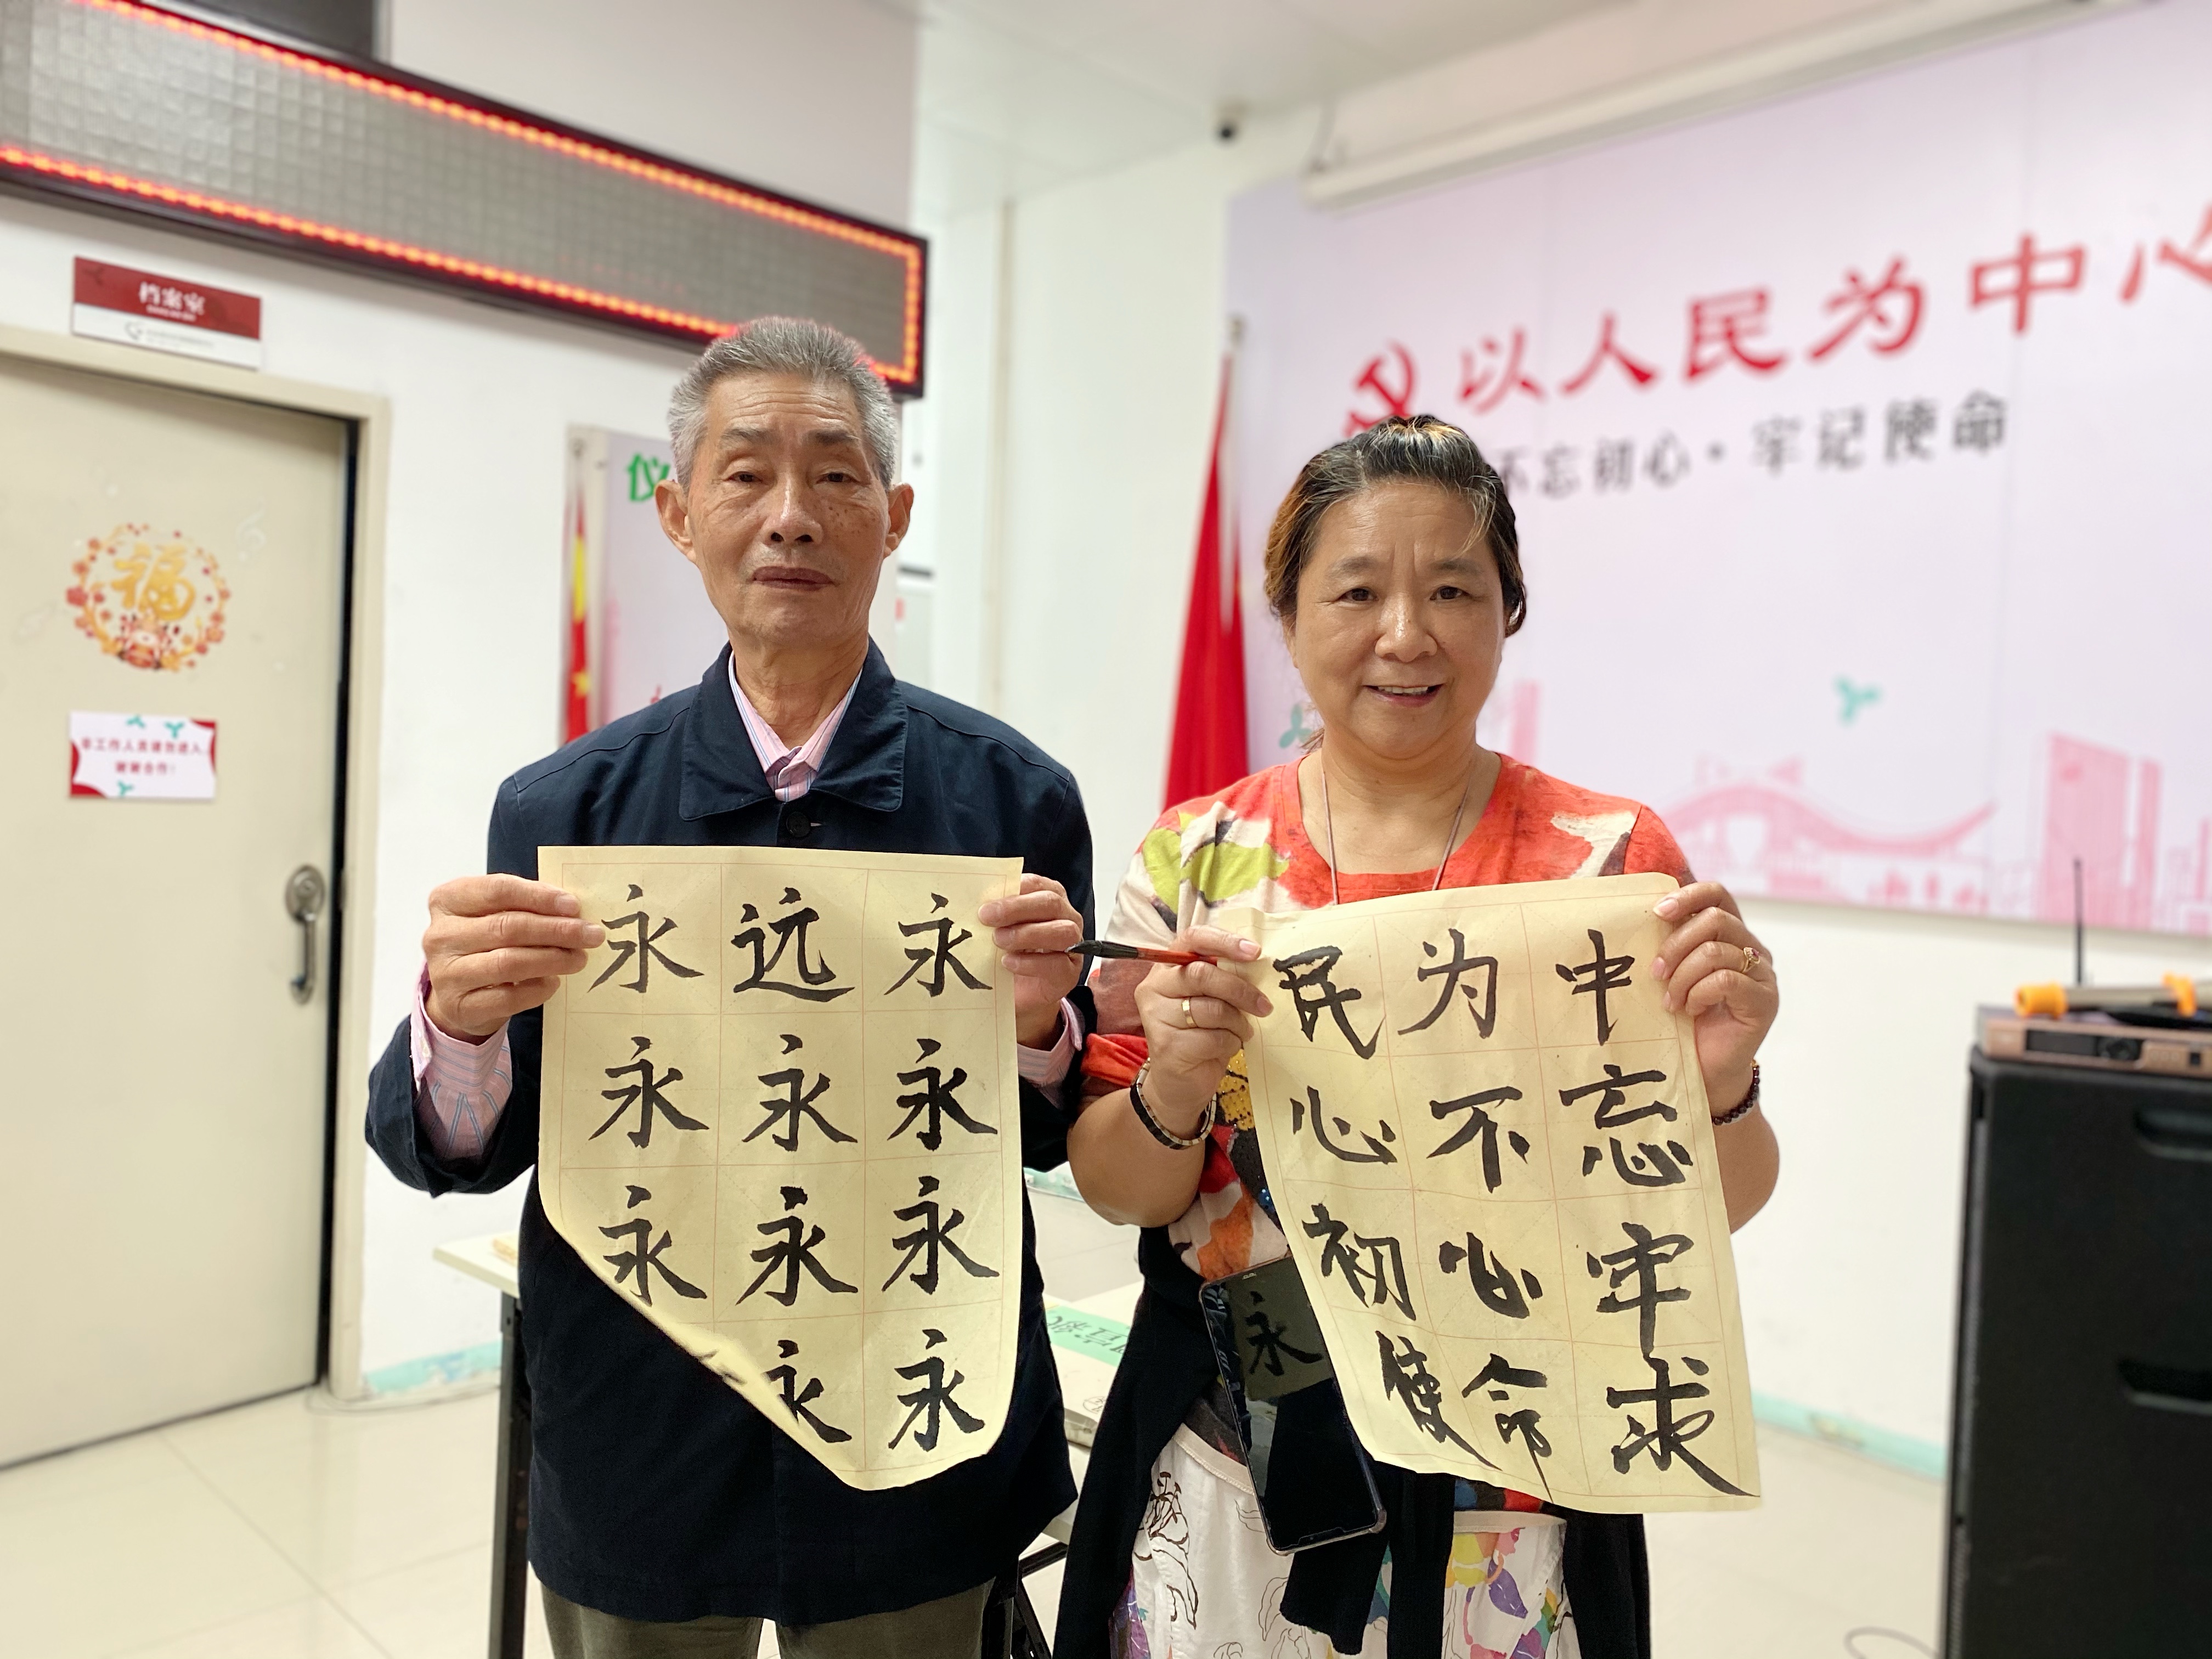 档案室
福
非工作人员请勿进入
谢谢合作!
仪
以人民为中心
不忘初心·牢记使命
永远永
永永永
永永永
永永
民为中
心不忘
初心牢
使命求
永